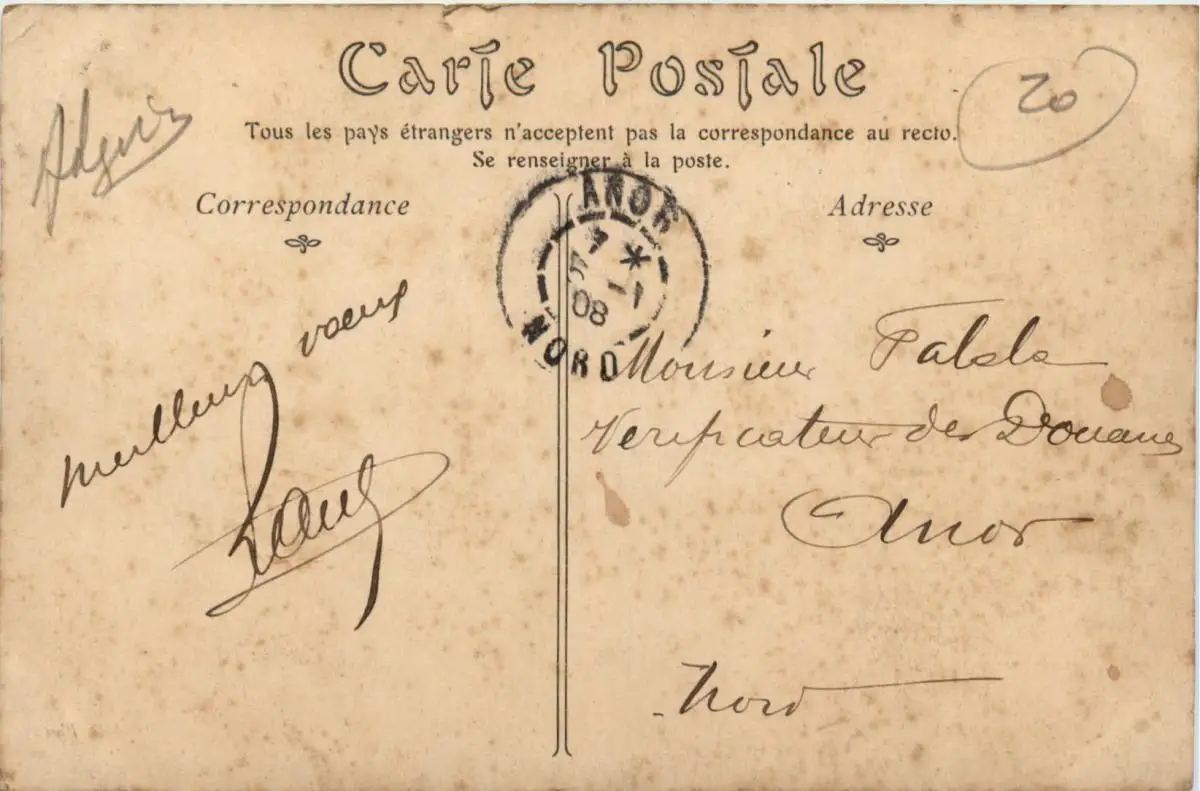 Carte Postale
20
Tous les pays étrangers n'acceptent pas la correspondance au recto.
Se renseigner à la poste.
Correspondance
Adresse
ANOR
4 *
7 -1
08
NORD
meilleurs voeux
Monsieur
Verificateur des Douanes
Anor
Nord